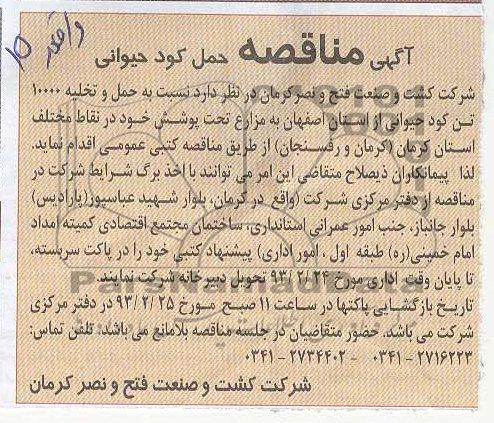 آگهی مناقصه حمل کود حیوانی
شرکت کشت و صنعت فتح و نصرکرمان در نظر دارد نسبت به حمل و تخلیه ۱۰۰۰۰
تن کود حیوانی از استان اصفهان به مزارع تحت پوشش خود در نقاط مختلف
استان کرمان (کرمان و رفسنجان) از طریق مناقصه کتبی عمومی اقدام نماید.
لذا پیمانکاران ذیصلاح متقاضی این امر می توانند با اخذ برگ شرایط شرکت در
مناقصه از دفتر مرکزی شرکت (واقع در کرمان، بلوار شهید عباسپور(پارادیس)
بلوار جانباز، جنب امور عمرانی استانداری، ساختمان مجتمع اقتصادی کمیته امداد
امام خمینی(ره) طبقه اول ، امور اداری) پیشنهاد کتبی خود را در پاکت سربسته،
تا پایان وقت اداری مورخ ۹۳/۲/۲۴ تحویل دبیرخانه شرکت نمایند.
تاریخ بازگشایی پاکتها در ساعت ۱۱ صبح مورخ ۹۳/۲/۲۵ در دفتر مرکزی
شرکت می باشد. حضور متقاضیان در جلسه مناقصه بلامانع می باشد. تلفن تماس:
۲۷۱۶۲۲۳ - ۰۳۴۱ ۲۷۳۴۴۰۲ - ۰۳۴۱
شرکت کشت و صنعت فتح و نصر کرمان